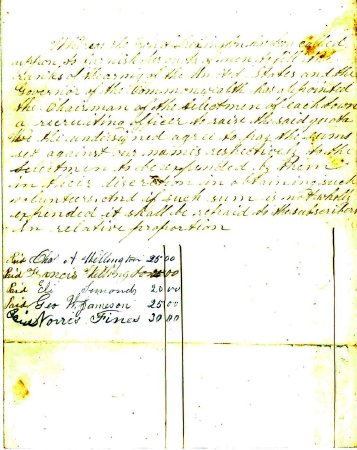 Whereas the town of Lexington has been called
upon to furnish enough men to fill up the
ranks of the army of the United States and the
Governor of the Commonwealth has appointed
the Chairman of the Selectmen of each town
a recruiting officer to raise the said quota
We the undersigned agree to pay the sums
set against our names respectively to the
Selectmen to be expended by them
in their discretion in obtaining such
volunteers and if such sum is not wholly
expended it shall be repaid to the subscribers
in relative proportion
Paid Chs A Wellington 25 00
Paid Francis Wellington 00
Paid Eli Simonds 20 00
Paid Geo W. Jameson 25 00
Paid Norris Fines 30 00